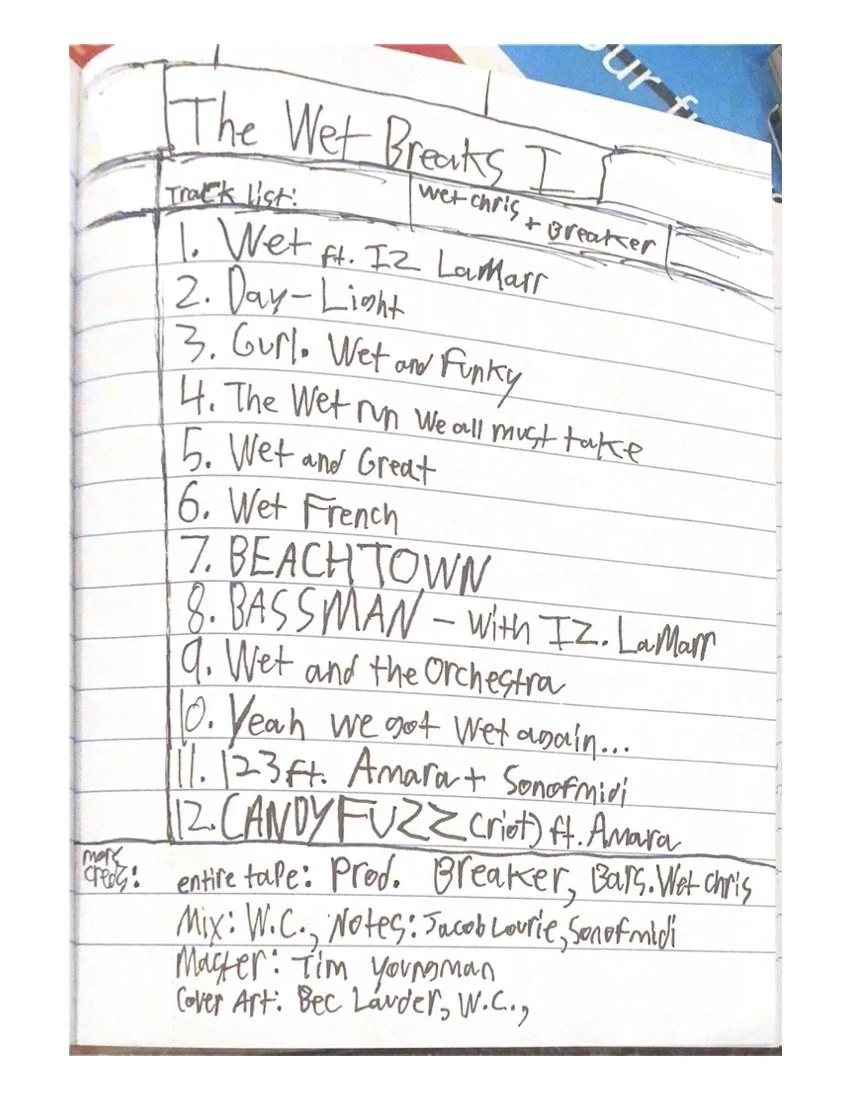 our f
The Wet Breaks I
Track List:
Wet chris + Breaker
1. Wet ft. IZ LaMarr
2. Day-Light
3. Gurl. Wet and Funky
4. The Wet run We all must take
5. Wet and Great
6. Wet French
7. BEACHTOWN
8. BASSMAN - With IZ. LaMarr
9. Wet and the Orchestra
10. Yeah we got Wet again...
11. 123 ft. Amara + Sonofmidi
12. CANDYFUZZ (riot) ft. Amara
more creds:
entire tape: Prod. Breaker, Bars. Wet chris
Mix: W.C., Notes: Jacob Lourie, Sonofmidi
Master: Tim Youngman
Cover Art: Bec Lauder, W.C.,